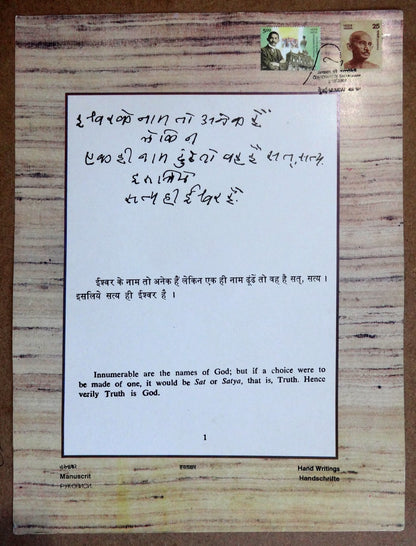 25
MUMBAI
ईश्वर के नाम तो अनेक हैं
लेकिन
एक ही नाम ढुंढें तो वह है सत्, सत्य
इसलिये
सत्य ही ईश्वर है.
ईश्वर के नाम तो अनेक हैं लेकिन एक ही नाम ढूंढें तो वह है सत्, सत्य ।
इसलिये सत्य ही ईश्वर है ।
Innumerable are the names of God; but if a choice were to
be made of one, it would be Sat or Satya, that is, Truth. Hence
verily Truth is God.
1
हस्ताक्षर
Manuscrit
Hand Writings
Handschrifte